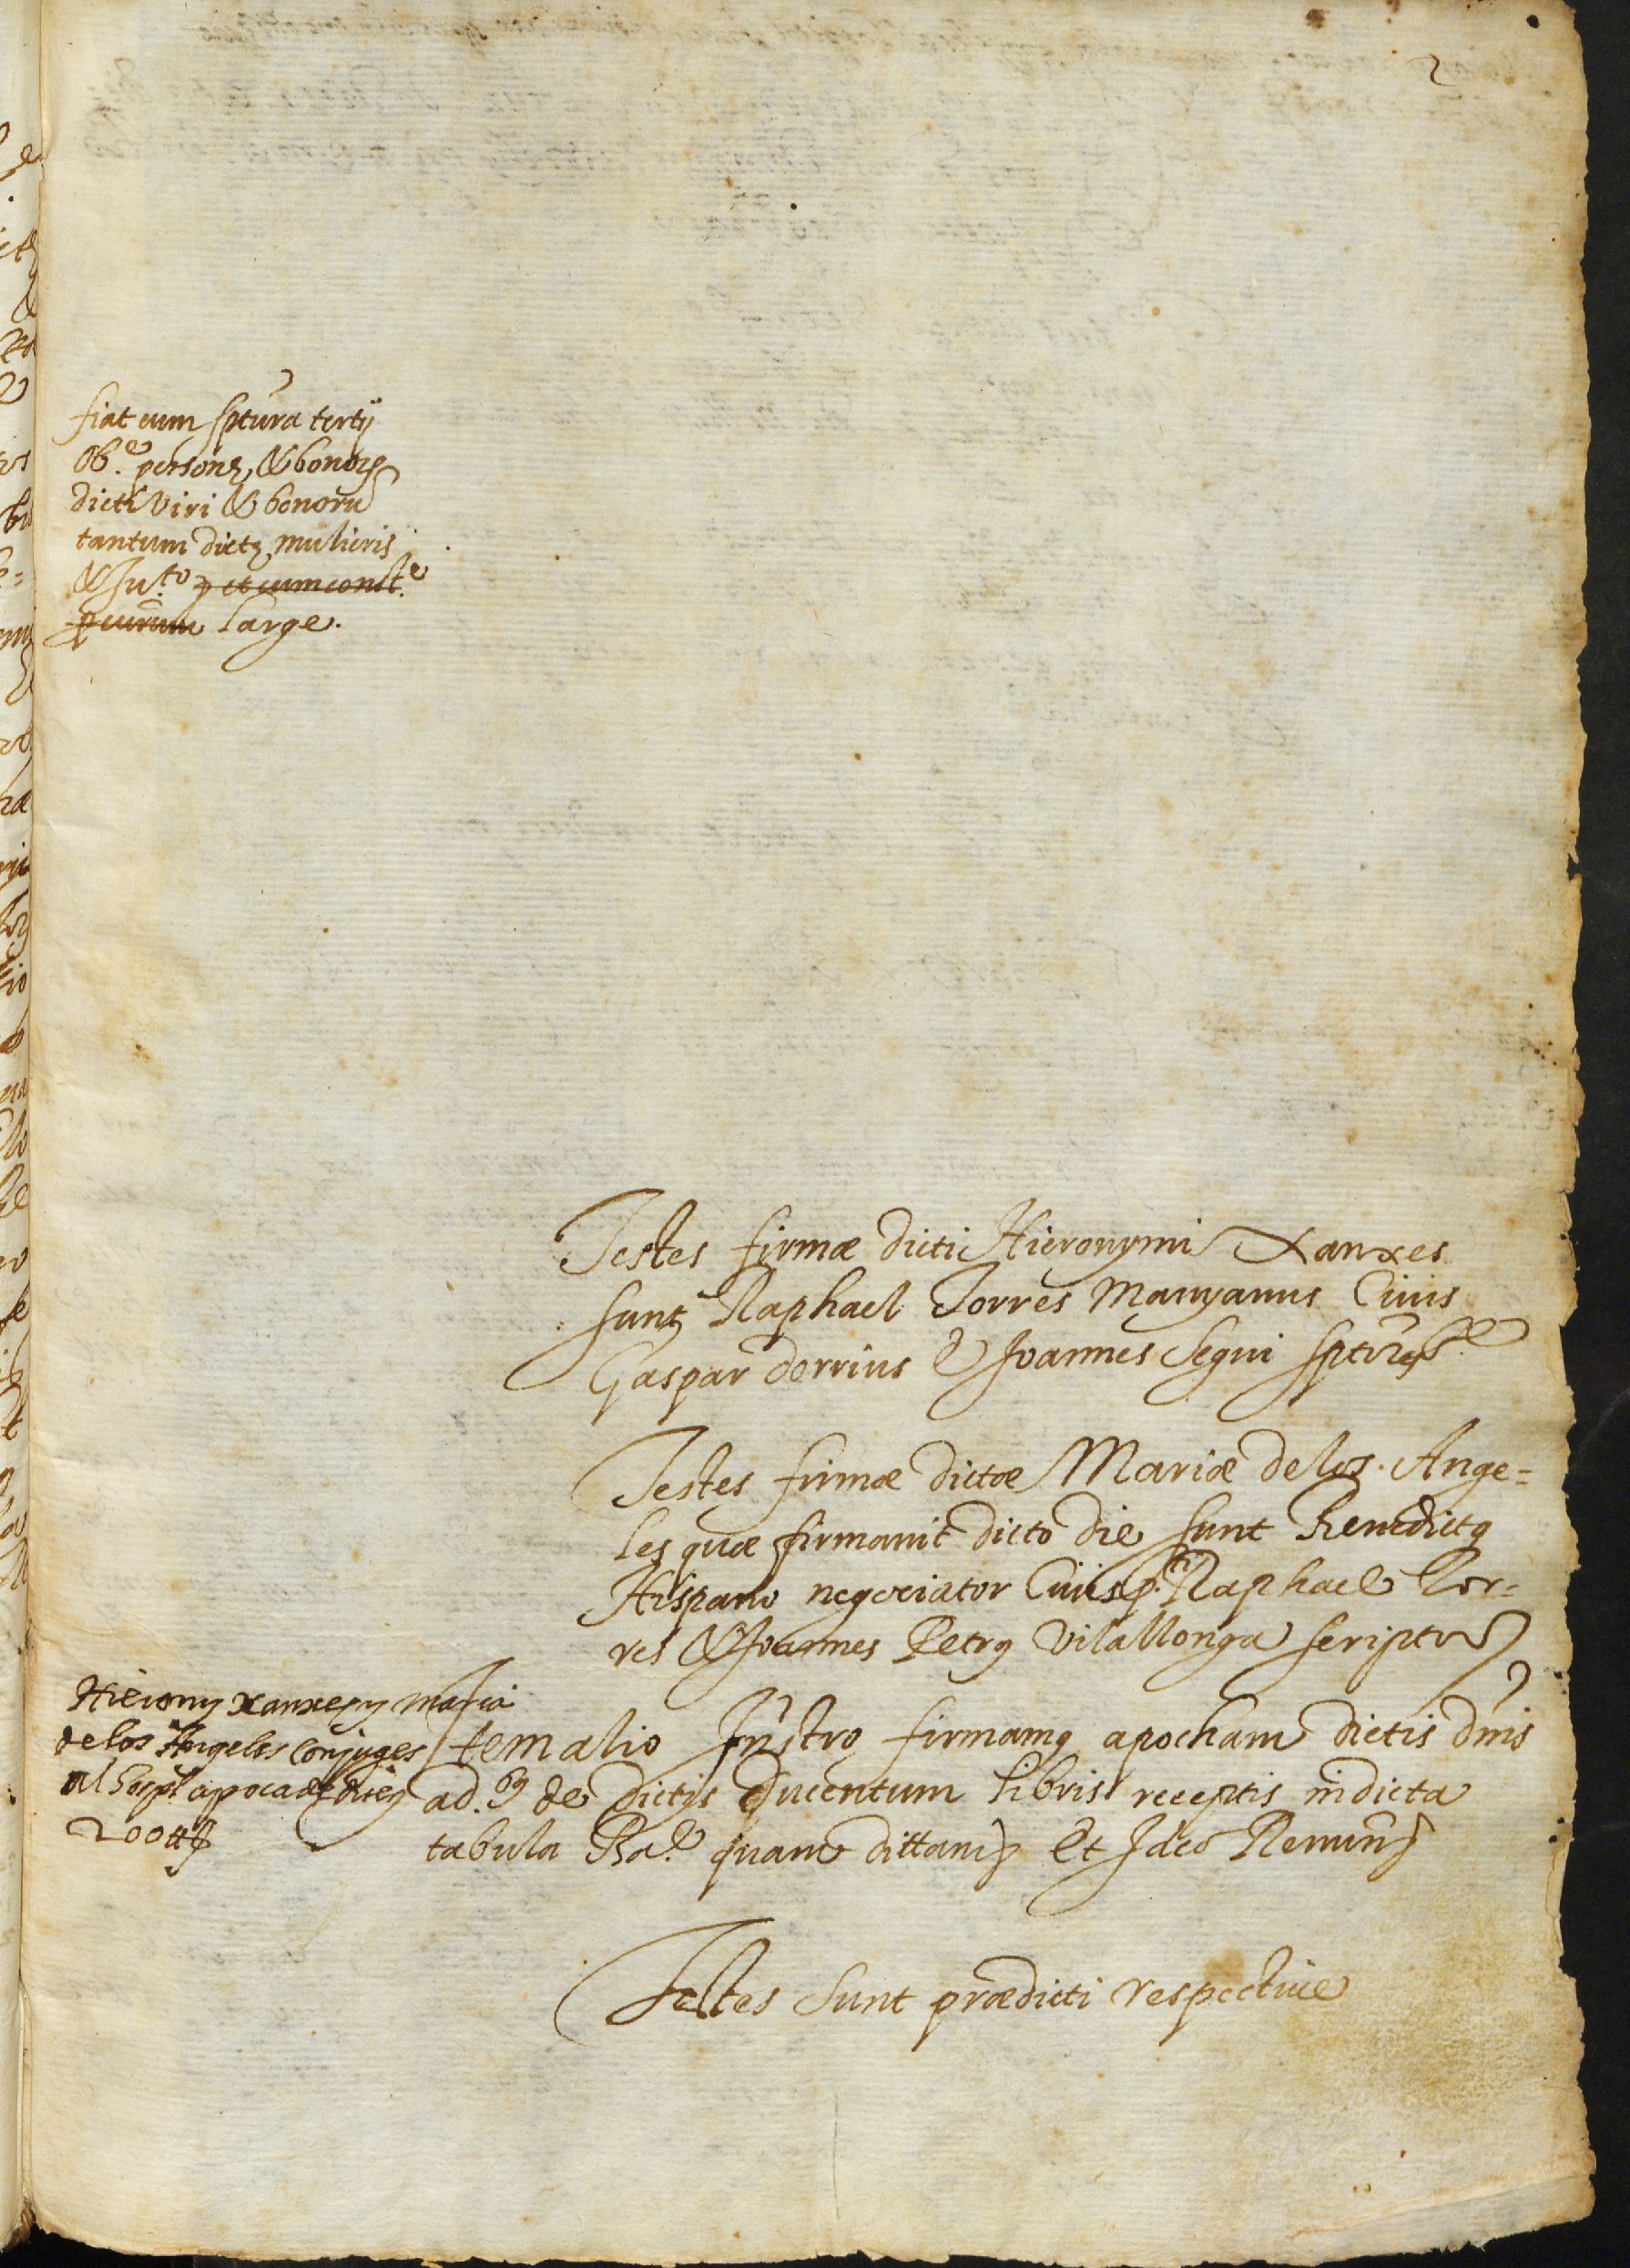 2
fiat cum sptura tertij
Ob.e personę & bonorũ
dicti viri & bonorũ
tantum dictę mulieris
& Ju.to et cum const.e
large.
Testes firmæ dicti Hieronymi Xanxes
sunt Raphael Torres Manyanus Civis
Gaspar dorrius & Joannes Segui sptores
Testes firmæ dictæ Mariæ de los Ange=
les quæ firmavit dicto die sunt Benedictq
Hispano negociator Civis p.ti Raphael Tor=
res & Joannes Petrq Vilallonga scriptor
Hierony Xanxes y maria
de los Angeles Conjuges
al apoca de
200 ₶
Item alio Jnstro firmamq apocham dictis dnis
ad.bq de dictis ducentum libris receptis in dicta
tabula Ba.e quam dittam Et Jdeo Renun
Testes sunt prædicti respective